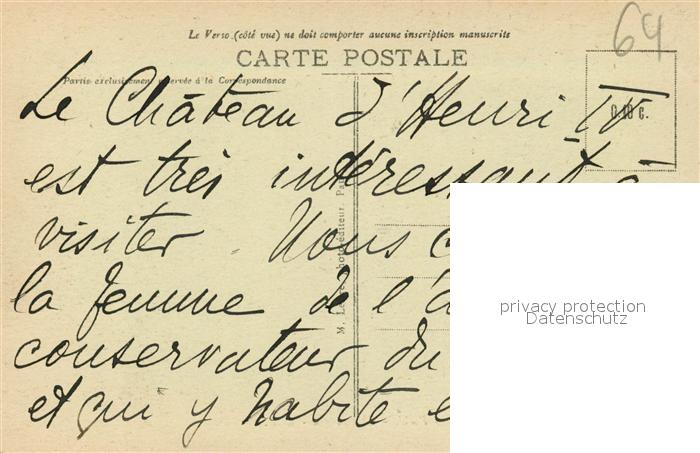 64
Le Verso (côté vue) ne doit comporter aucune inscription manuscrite
CARTE POSTALE
Partie exclusivement réservée à la Correspondance
0.10 c.
Le Château d'Henri IV
est très intéressant à
visiter. Nous
la femme de l'
conservateur du
et qui y habite
privacy protection
Datenschutz